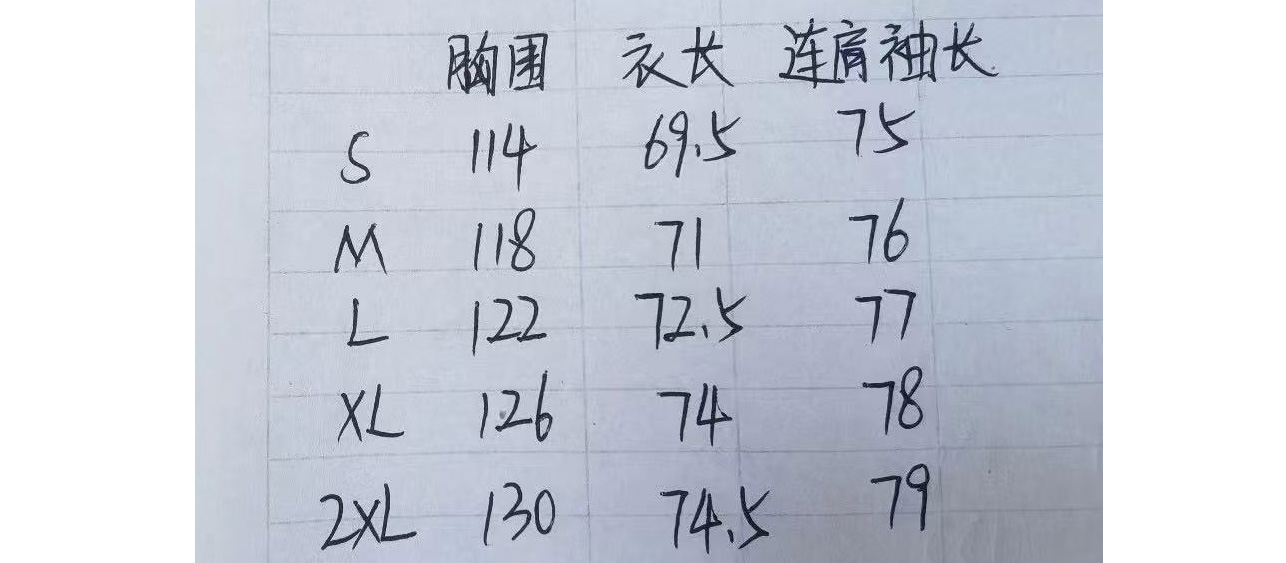 胸围 衣长 连肩袖长
S 114 69.5 75
M 118 71 76
L 122 72.5 77
XL 126 74 78
2XL 130 74.5 79